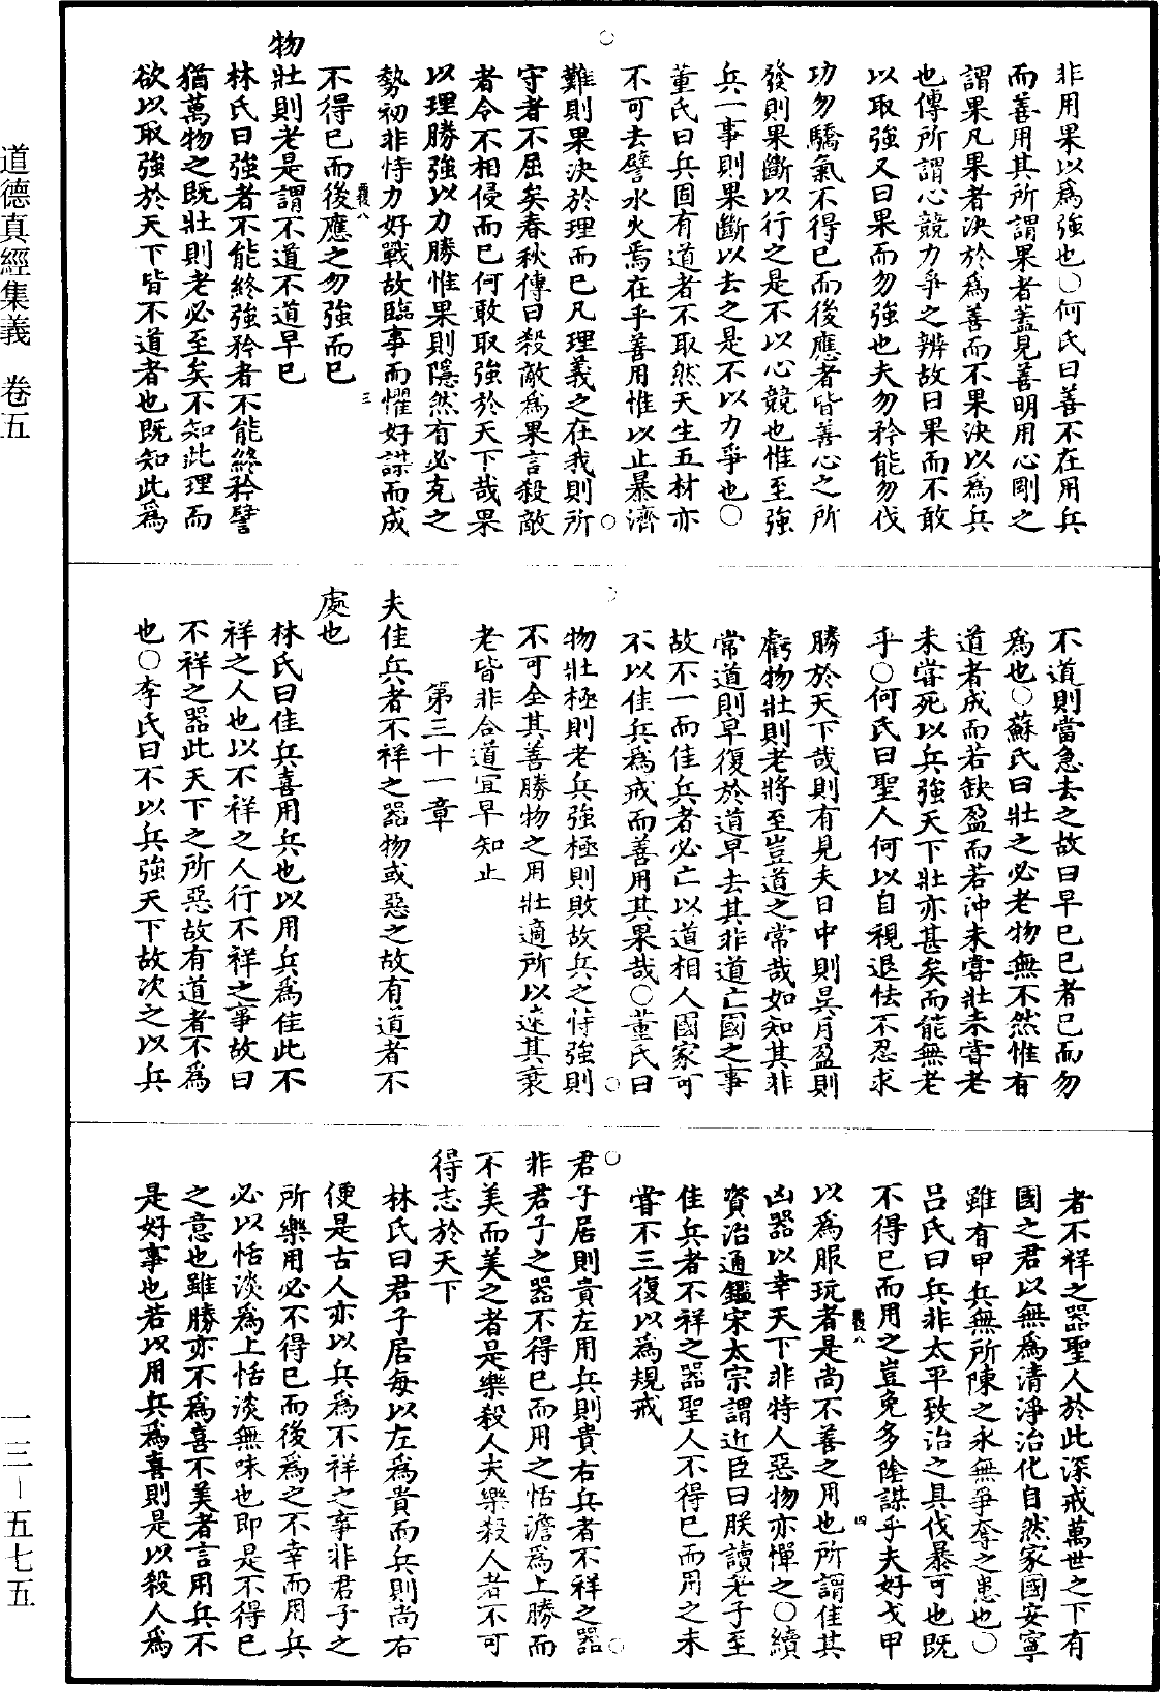 非用果以爲強也○何氏曰善不在用兵
而善用其所謂果者蓋見善明用心剛之
謂果凡果者決於爲善而不果決以爲兵
也傳所謂心競力爭之辨故曰果而不敢
以取強又曰果而勿強也夫勿矜能勿伐
功勿驕氣不得已而後應者皆善心之所
發則果斷以行之是不以心競也惟至強
兵一事則果斷以去之是不以力爭也○
董氏曰兵固有道者不取然天生五材亦
不可去譬水火焉在乎善用惟以止暴濟
難則果決於理而已凡理義之在我則所
守者不屈矣春秋傳曰殺敵爲果言殺敵
者令不相侵而已何敢取強於天下哉果
以理勝強以力勝惟果則隱然有必克之
勢初非恃力好戰故臨事而懼好謀而成
不得已而後應之勿強而已
物壯則老是謂不道不道早已
林氏曰強者不能終強矜者不能終矜譬
猶萬物之既壯則老必至矣不知此理而
欲以取強於天下皆不道者也既知此爲
不道則當急去之故曰早已已者已而勿
爲也○蘇氏曰壯之必老物無不然惟有
道者成而若缺盈而若沖未嘗壯未嘗老
未嘗死以兵強天下壯亦甚矣而能無老
乎○何氏曰聖人何以自視退怯不忍求
勝於天下哉則有見夫日中則昃月盈則
虧物壯則老將至豈道之常哉如知其非
常道則早復於道早去其非道亡國之事
故不一而佳兵者必亡以道相人國家可
不以佳兵爲戒而善用其果哉○董氏曰
物壯極則老兵強極則敗故兵之恃強則
不可全其善勝物之用壯適所以速其衰
老皆非合道宜早知止
第三十一章
夫佳兵者不祥之器物或惡之故有道者不
處也
林氏曰佳兵喜用兵也以用兵爲佳此不
祥之人也以不祥之人行不祥之事故曰
不祥之器此天下之所惡故有道者不爲
也○李氏曰不以兵強天下故次之以兵
者不祥之器聖人於此深戒萬世之下有
國之君以無爲清淨治化自然家國安寧
雖有甲兵無所陳之永無爭奪之患也○
呂氏曰兵非太平致治之具伐暴可也既
不得已而用之豈免多陰謀乎夫好戈甲
以爲服玩者是尚不善之用也所謂佳其
凶器以幸天下非特人惡物亦憚之○續
資治通鑑宋太宗謂近臣曰朕讀老子至
佳兵者不祥之器聖人不得已而用之未
嘗不三復以爲規戒
君子居則貴左用兵則貴右兵者不祥之器
非君子之器不得已而用之恬澹爲上勝而
不美而美之者是樂殺人夫樂殺人者不可
得志於天下
林氏曰君子居每以左爲貴而兵則尚右
便是古人亦以兵爲不祥之事非君子之
所樂用必不得已而後爲之不幸而用兵
必以恬淡爲上恬淡無味也即是不得已
之意也雖勝亦不爲喜不美者言用兵不
是好事也若以用兵爲喜則是以殺人爲
道德真經集義 卷五
一三-五七五